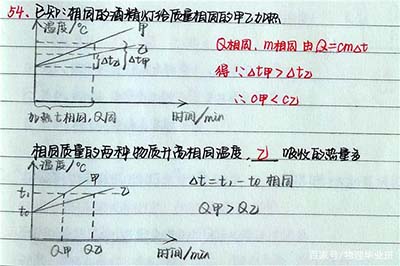 54. 已知:相同的酒精灯给质量相同的甲乙加热
温度/℃
甲
乙
Δt乙
Δt甲
Q相同, m相同 由Q=cmΔt
得 ∵Δt甲>Δt乙
∴ C甲<C乙
加热t相同, Q同
时间/min
相同质量的两种物质升高相同温度, 乙 吸收的热量多
温度/℃
甲
乙
t₁
t₀
Δt=t₁-t₀ 相同
Q甲>Q乙
Q甲 Q乙
时间/min
百家号/物理毕业班